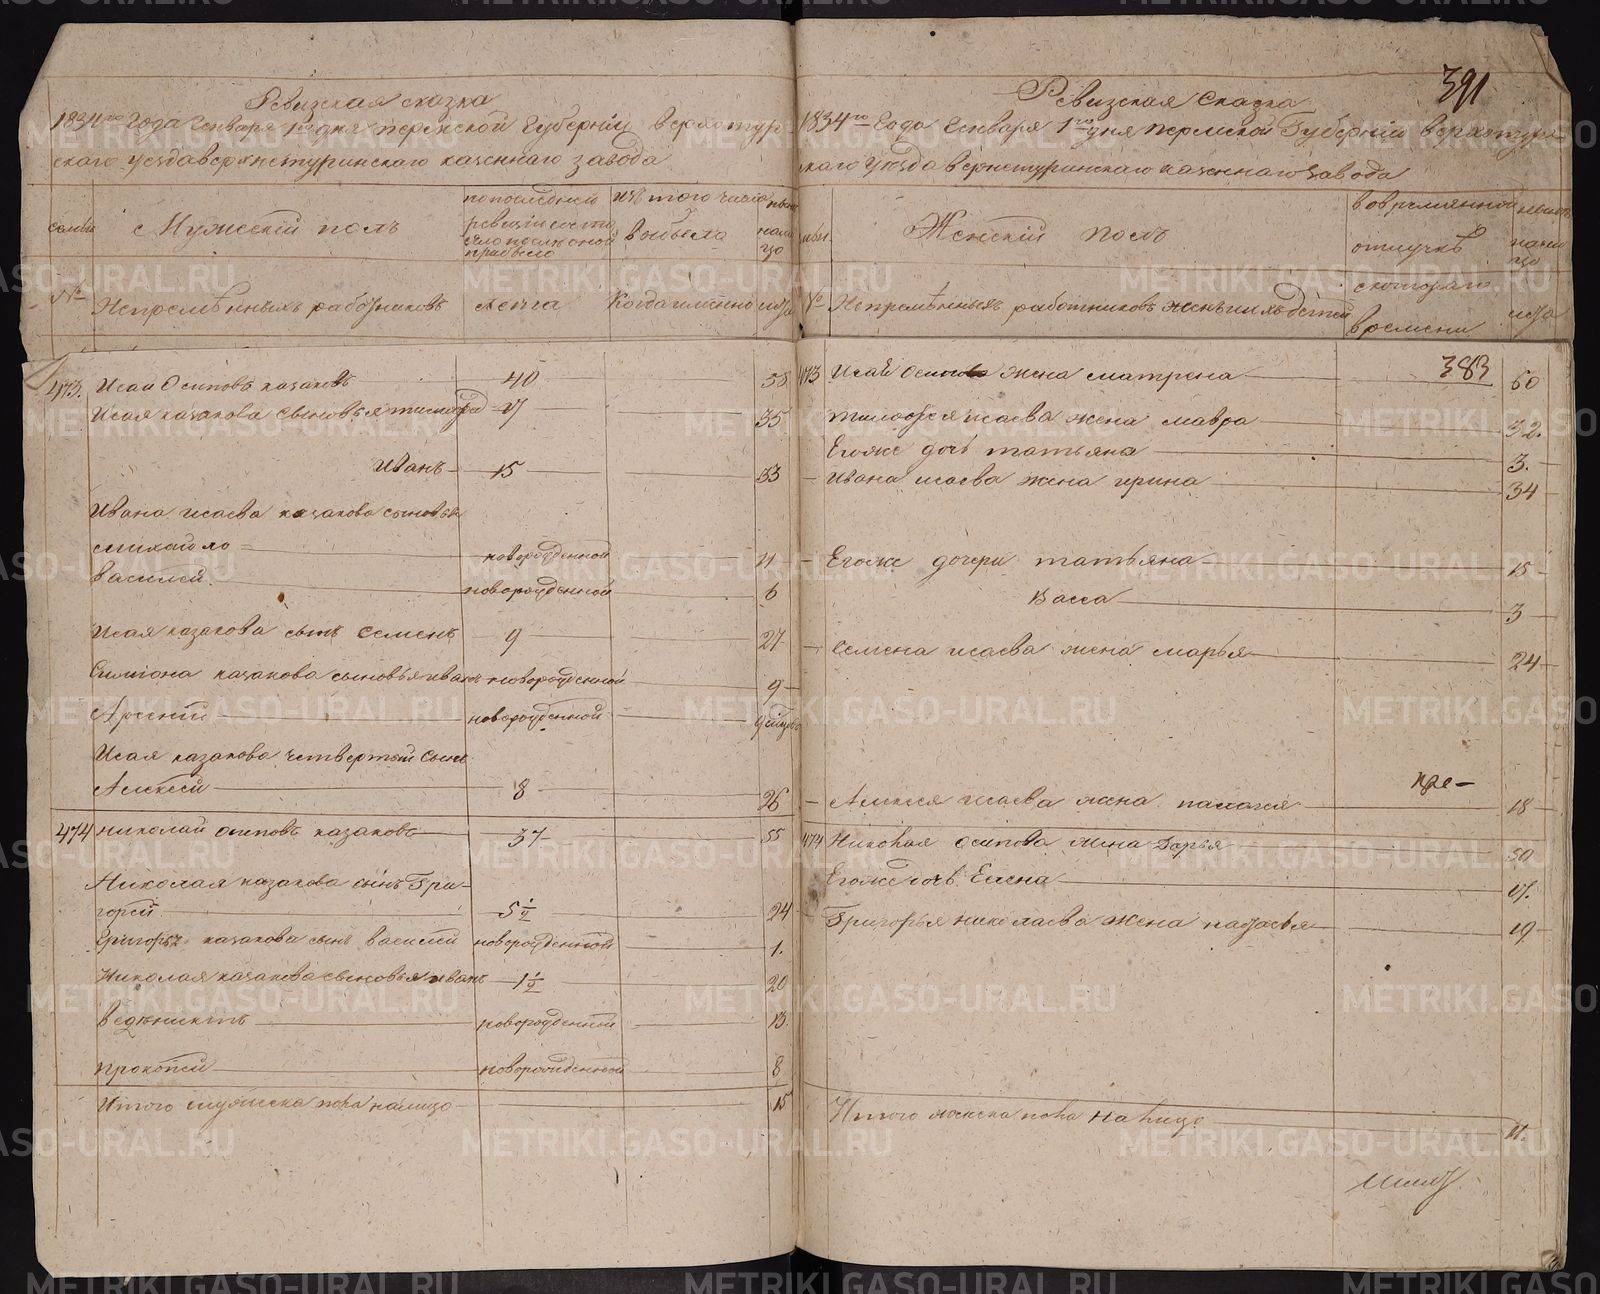 391
Ревизская сказка
1834го года Генваря 1го дня пермской Губернiи верхотур-
скаго уезда верхнетуринскаго казеннаго завода
семьи
Мужескiй полъ
по последней ревизiи состояло
изъ того числа выбыло
ныне на лицо
№
Непремѣнныхъ работников
лета
Когда именно
лета
473. Исай Осиповъ казаковъ 40 58
Исая казакова сыновья тимофей 17 35
Иванъ 15 33
Ивана исаева казакова сыновья
михайло новорожденной 11
василей новорожденной 6
Исая казакова сынъ Семенъ 9 27
Симиона казакова сыновья иванъ новорожденной 9
Арсентiй новорожденной
Исая казакова четвертый сынъ
Алексей 8 26
474 николай осиповъ казаковъ 37 55
Николая казакова сынъ Гри-
горей 5 ½ 24
Григорья казакова сынъ василей новорожденной 1.
Николая казакова сыновья иванъ 1 ½ 20
новорожденной 13.
прокопей новорожденной 8
Итого мужеска пола налицо 15
Ревизская Сказка
1834го Года Генваря 1го дня пермской Губернiи верхотур-
скаго уезда верхнетуринскаго казеннаго завода
Женскiй полъ
во временной отлучкѣ
ныне на лицо
№
Непремѣнныхъ работниковъ жены и ихъ дѣтей
с котораго времени
лета
383
473 Исая Осипова жена матрена 60
тимофея исаева жена мавра 32.
Егоже дочь татьяна 3.
Ивана исаева жена ирина 34
Егоже дочери татьяна 15
Васса 3
Семена исаева жена марья 24
Алексея исаева жена палагея 18
474 Николая осипова жена Дарья 50
Егоже дочь Елена 17.
Григорья николаева жена настасья 19
Итого женска пола на лицо 11.
METRIKI.GASO-URAL.RU